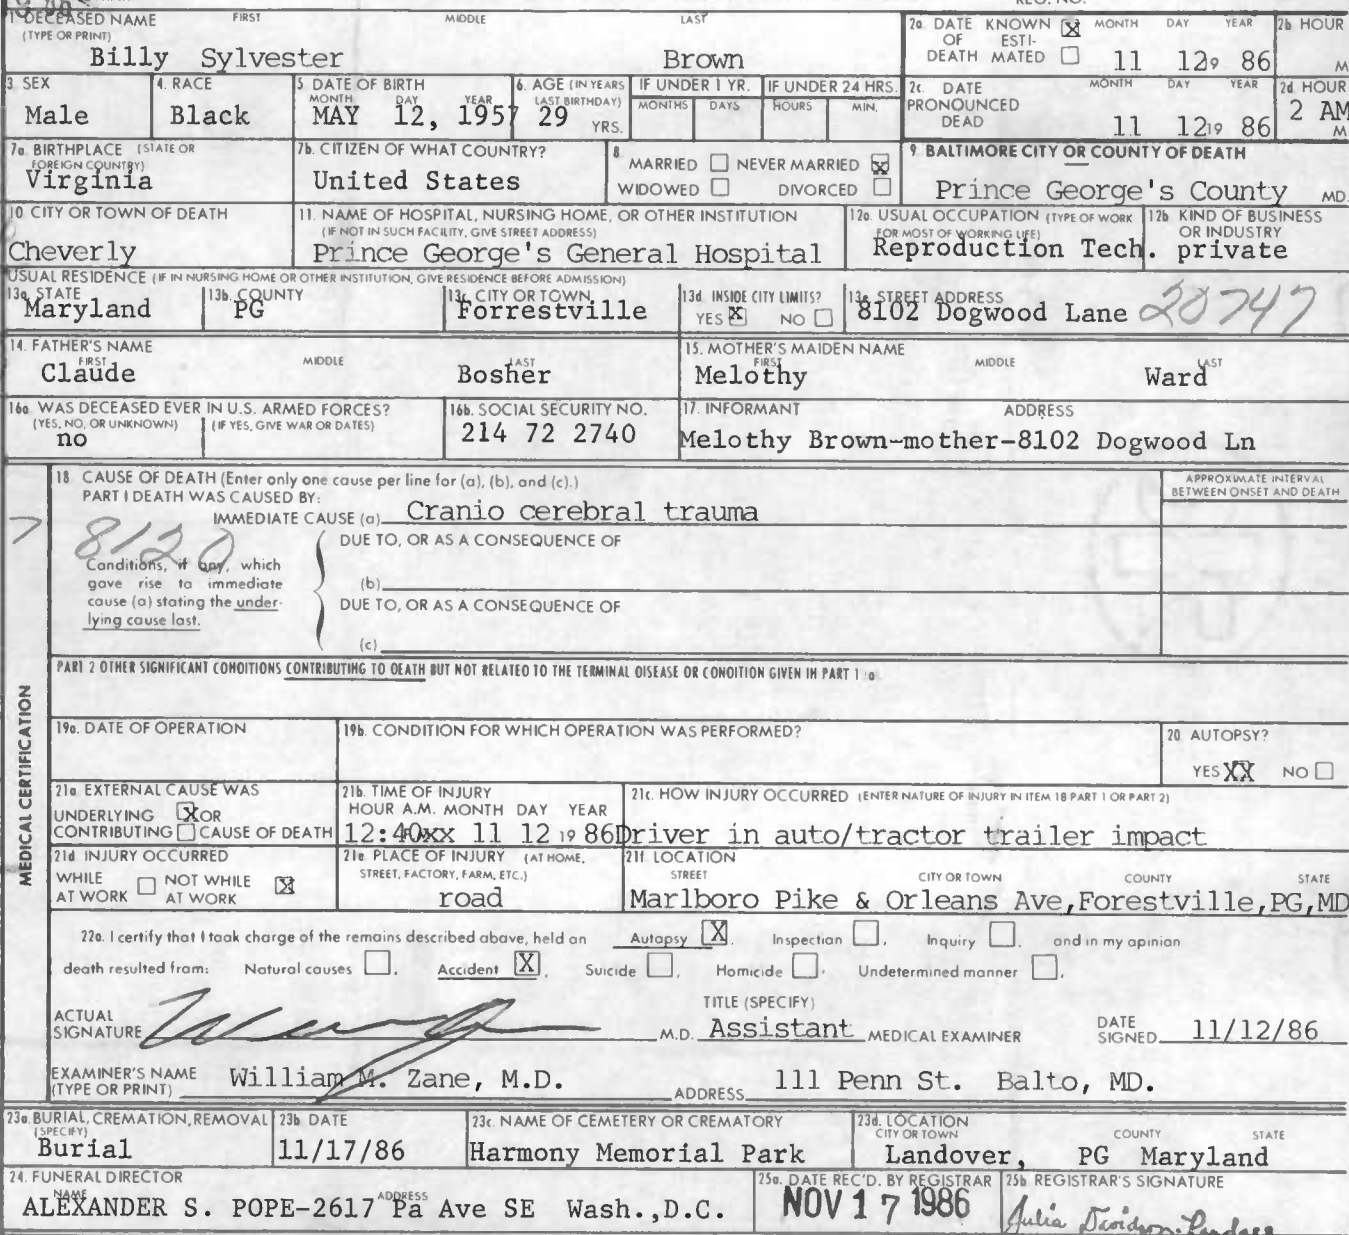 1 DECEASED NAME FIRST MIDDLE LAST
(TYPE OR PRINT)
Billy Sylvester Brown
2a. DATE KNOWN X MONTH DAY YEAR 2b. HOUR
OF ESTI-
DEATH MATED 11 12 19 86 M
3. SEX Male
4. RACE Black
5 DATE OF BIRTH
MONTH DAY YEAR
MAY 12, 1957
6. AGE (IN YEARS
LAST BIRTHDAY)
29 YRS.
IF UNDER 1 YR. IF UNDER 24 HRS.
MONTHS DAYS HOURS MIN.
2c. DATE MONTH DAY YEAR 2d. HOUR
PRONOUNCED
DEAD 11 12 19 86 2 AM
M
7a. BIRTHPLACE (STATE OR
FOREIGN COUNTRY)
Virginia
7b. CITIZEN OF WHAT COUNTRY?
United States
8
MARRIED NEVER MARRIED X
WIDOWED DIVORCED
9. BALTIMORE CITY OR COUNTY OF DEATH
Prince George's County MD.
10 CITY OR TOWN OF DEATH
Cheverly
11. NAME OF HOSPITAL, NURSING HOME, OR OTHER INSTITUTION
(IF NOT IN SUCH FACILITY, GIVE STREET ADDRESS)
Prince George's General Hospital
12a. USUAL OCCUPATION (TYPE OF WORK
FOR MOST OF WORKING LIFE)
Reproduction Tech.
12b. KIND OF BUSINESS
OR INDUSTRY
private
USUAL RESIDENCE (IF IN NURSING HOME OR OTHER INSTITUTION, GIVE RESIDENCE BEFORE ADMISSION)
13a. STATE
Maryland
13b. COUNTY
PG
13c. CITY OR TOWN
Forrestville
13d. INSIDE CITY LIMITS?
YES X NO
13e. STREET ADDRESS
8102 Dogwood Lane 20747
14. FATHER'S NAME
FIRST MIDDLE LAST
Claude Bosher
15. MOTHER'S MAIDEN NAME
FIRST MIDDLE LAST
Melothy Ward
16a. WAS DECEASED EVER IN U.S. ARMED FORCES?
(YES, NO, OR UNKNOWN) (IF YES, GIVE WAR OR DATES)
no
16b. SOCIAL SECURITY NO.
214 72 2740
17. INFORMANT ADDRESS
Melothy Brown-mother-8102 Dogwood Ln
MEDICAL CERTIFICATION
18 CAUSE OF DEATH (Enter only one cause per line for (a), (b), and (c).)
PART I DEATH WAS CAUSED BY:
APPROXIMATE INTERVAL
BETWEEN ONSET AND DEATH
IMMEDIATE CAUSE (a) Cranio cerebral trauma
8120
DUE TO, OR AS A CONSEQUENCE OF
Conditions, if any, which
gave rise to immediate
cause (a) stating the under-
lying cause last.
(b)
DUE TO, OR AS A CONSEQUENCE OF
(c)
PART 2 OTHER SIGNIFICANT CONDITIONS CONTRIBUTING TO DEATH BUT NOT RELATED TO THE TERMINAL DISEASE OR CONDITION GIVEN IN PART 1 a
19a. DATE OF OPERATION
19b. CONDITION FOR WHICH OPERATION WAS PERFORMED?
20 AUTOPSY?
YES XX NO
21a EXTERNAL CAUSE WAS
UNDERLYING X OR
CONTRIBUTING CAUSE OF DEATH
21b. TIME OF INJURY
HOUR A.M. MONTH DAY YEAR
12:40xx 11 12 19 86
21c. HOW INJURY OCCURRED (ENTER NATURE OF INJURY IN ITEM 18 PART 1 OR PART 2)
Driver in auto/tractor trailer impact
21d INJURY OCCURRED
WHILE NOT WHILE X
AT WORK AT WORK
21e. PLACE OF INJURY (AT HOME,
STREET, FACTORY, FARM, ETC.)
road
21f. LOCATION
STREET CITY OR TOWN COUNTY STATE
Marlboro Pike & Orleans Ave,Forestville,PG,MD
22a. I certify that I took charge of the remains described above, held an Autopsy X, Inspection, Inquiry, and in my opinion
death resulted from: Natural causes, Accident X, Suicide, Homicide, Undetermined manner.
ACTUAL
SIGNATURE M.D.
TITLE (SPECIFY)
Assistant MEDICAL EXAMINER
DATE
SIGNED 11/12/86
EXAMINER'S NAME
(TYPE OR PRINT) William M. Zane, M.D.
ADDRESS 111 Penn St. Balto, MD.
23a. BURIAL, CREMATION, REMOVAL
(SPECIFY)
Burial
23b. DATE
11/17/86
23c. NAME OF CEMETERY OR CREMATORY
Harmony Memorial Park
23d. LOCATION
CITY OR TOWN COUNTY STATE
Landover, PG Maryland
24. FUNERAL DIRECTOR
NAME ADDRESS
ALEXANDER S. POPE-2617 Pa Ave SE Wash.,D.C.
25a. DATE REC'D. BY REGISTRAR
NOV 17 1986
25b REGISTRAR'S SIGNATURE
Julia Davidson-